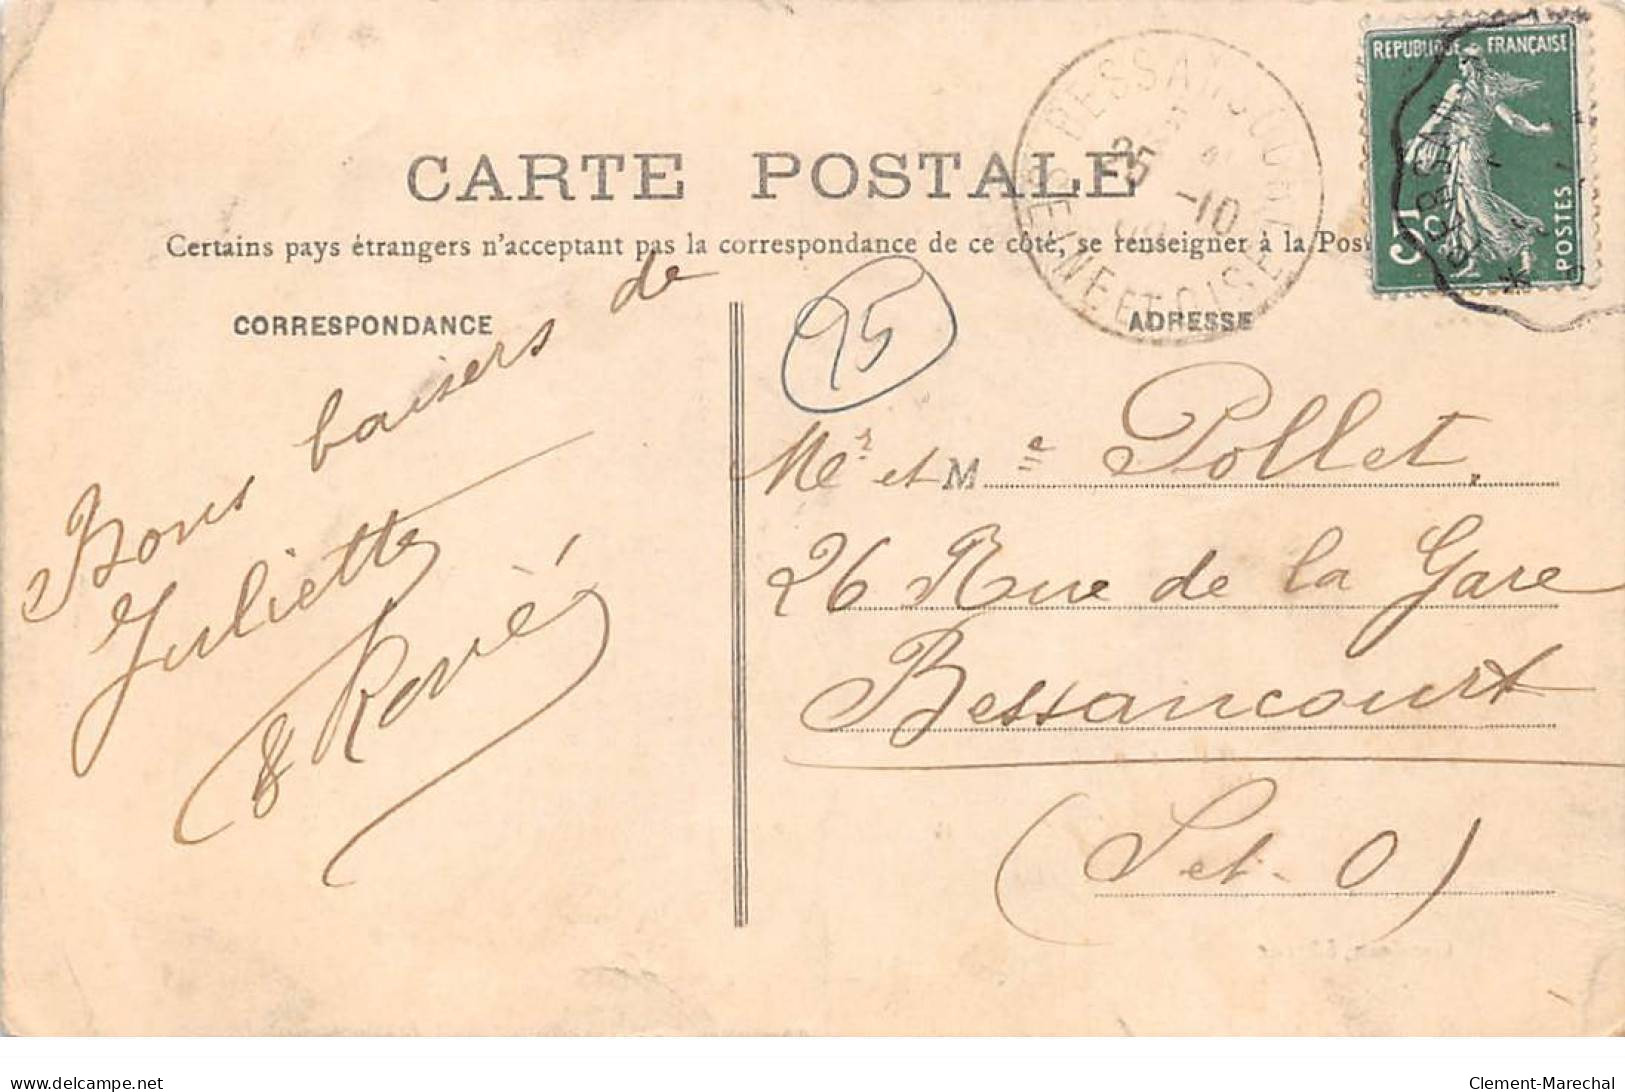 RÉPUBLIQUE FRANÇAISE
5c
POSTES
BESSANCOURT
25
-10
SEINE ET OISE
CARTE POSTALE
Certains pays étrangers n'acceptant pas la correspondance de ce côté, se renseigner à la Pos
CORRESPONDANCE
ADRESSE
95
Bons baisers de
Juliette
& René
Mr et Mme Pollet.
26 Rue de la Gare
Bessancourt
(S et. O)
delcampe.net
Clement-Marechal